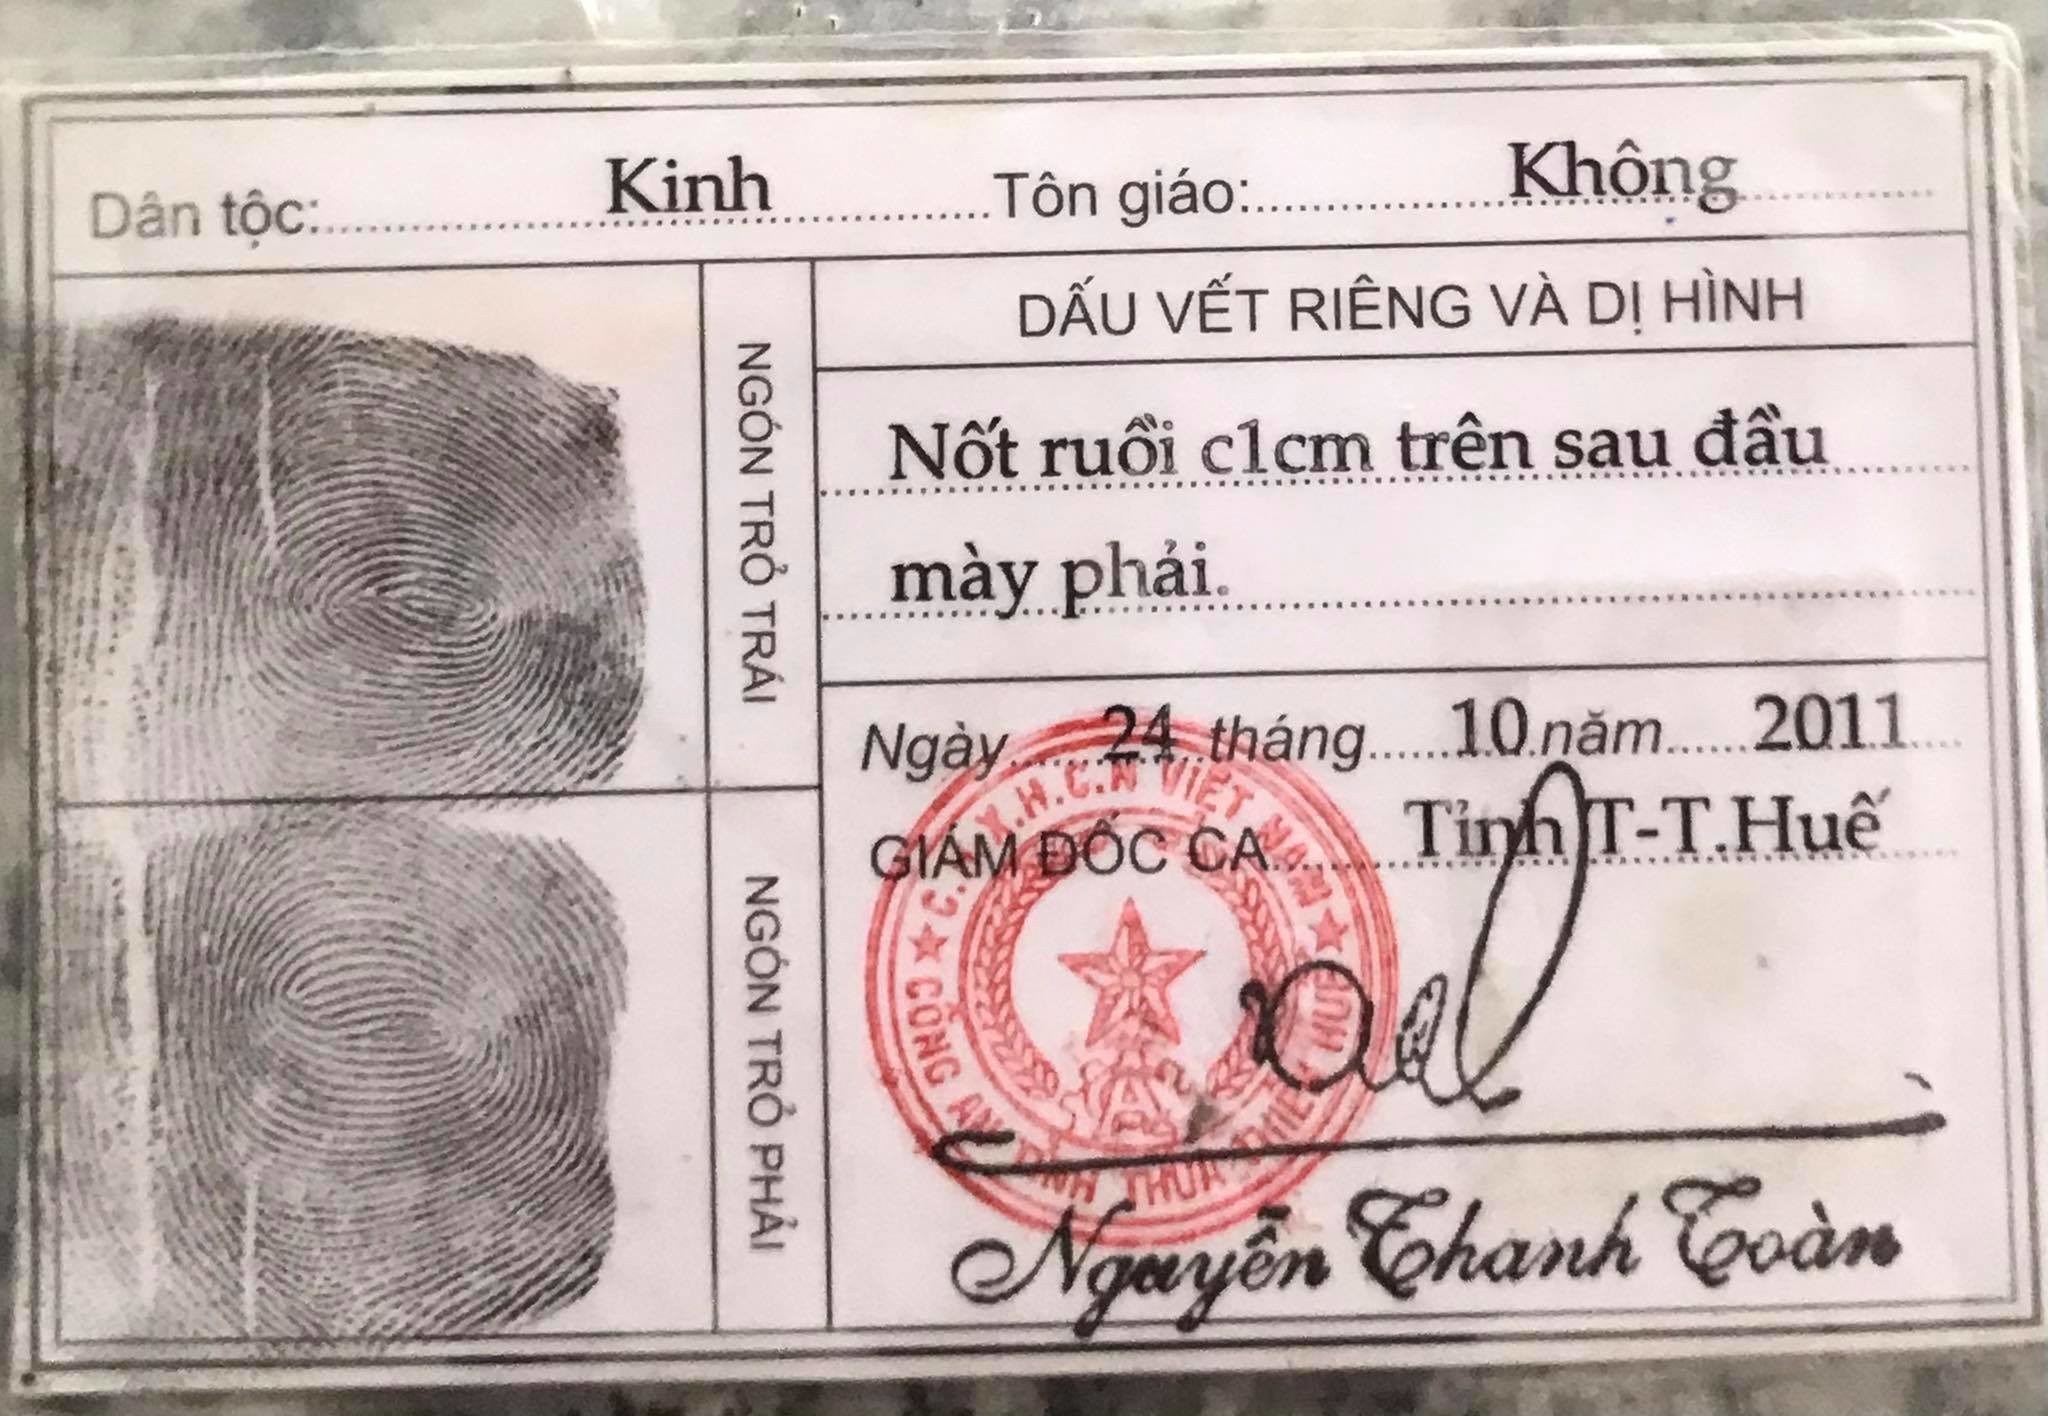 Dân tộc: Kinh Tôn giáo: Không
NGÓN TRỎ TRÁI
DẤU VẾT RIÊNG VÀ DỊ HÌNH
Nốt ruồi c1cm trên sau đầu
mày phải.
NGÓN TRỎ PHẢI
Ngày 24 tháng 10 năm 2011
GIÁM ĐỐC CA Tỉnh T-T.Huế
C.H.X.H.C.N VIỆT NAM
CÔNG AN TỈNH THỪA THIÊN HUẾ
Nguyễn Thanh Toàn